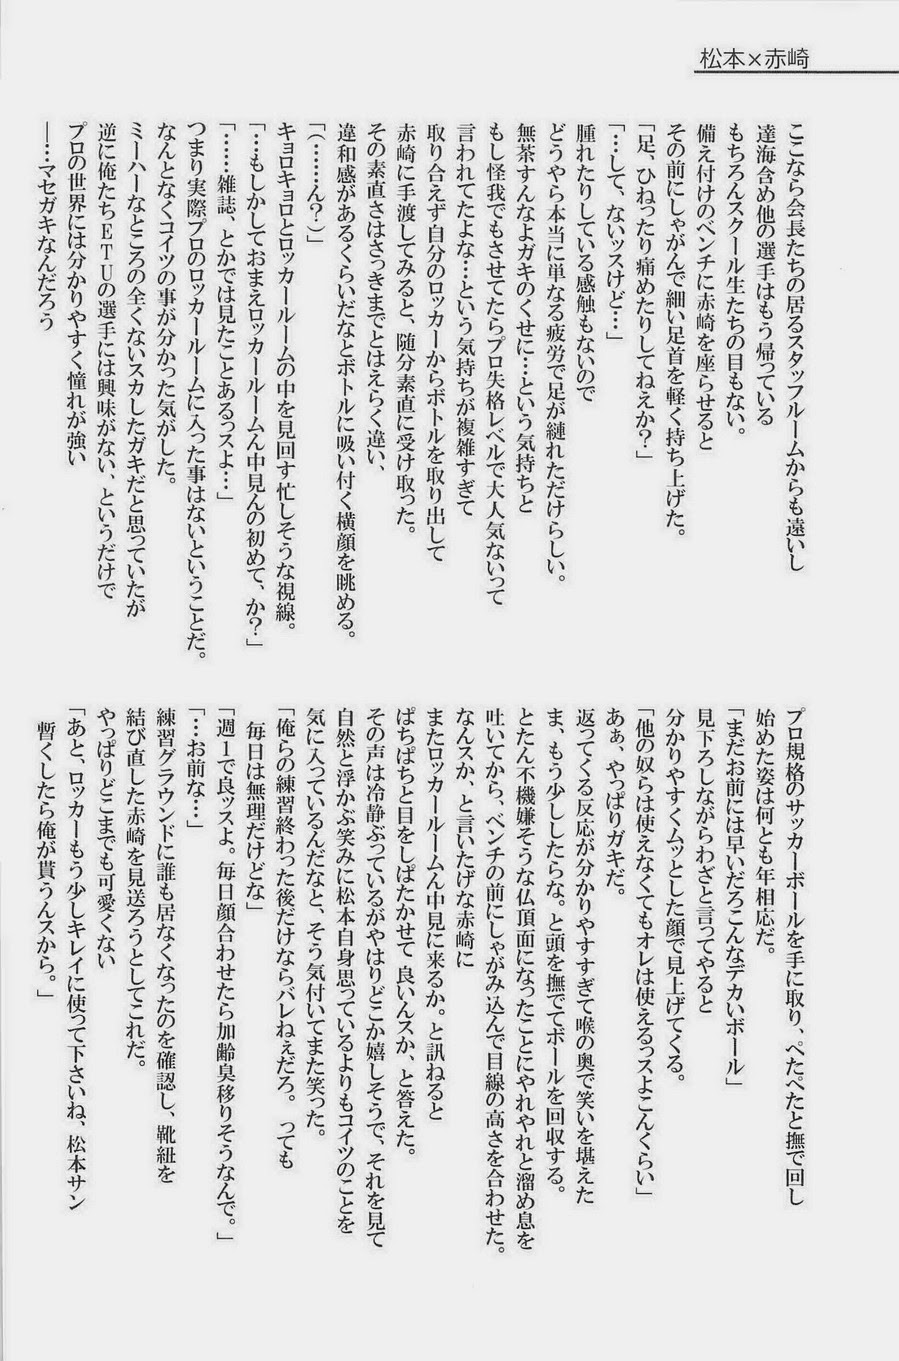 松本×赤崎
ここなら会長たちの居るスタッフルームからも遠いし
達海含め他の選手はもう帰っている
もちろんスクール生たちの目もない。
備え付けのベンチに赤崎を座らせると
その前にしゃがんで細い足首を軽く持ち上げた。
「足、ひねったり痛めたりしてねえか？」
「…して、ないッスけど…」
腫れたりしている感触もないので
どうやら本当に単なる疲労で足が縺れただけらしい。
無茶すんなよガキのくせに…という気持ちと
もし怪我でもさせてたらプロ失格レベルで大人気ないって
言われてたよな…という気持ちが複雑すぎて
取り合えず自分のロッカーからボトルを取り出して
赤崎に手渡してみると、随分素直に受け取った。
その素直さはさっきまでとはえらく違い、
違和感があるくらいだなとボトルに吸い付く横顔を眺める。
「（……ん？）」
キョロキョロとロッカールームの中を見回す忙しそうな視線。
「…もしかしておまえロッカールームん中見んの初めて、か？」
「……雑誌、とかでは見たことあるっスよ…」
つまり実際プロのロッカールームに入った事はないということだ。
なんとなくコイツの事が分かった気がした。
ミーハーなところの全くないスカしたガキだと思っていたが
逆に俺たちＥＴＵの選手には興味がない、というだけで
プロの世界には分かりやすく憧れが強い
―…マセガキなんだろう
プロ規格のサッカーボールを手に取り、ぺたぺたと撫で回し
始めた姿は何とも年相応だ。
「まだお前には早いだろこんなデカいボール」
見下ろしながらわざと言ってやると
分かりやすくムッとした顔で見上げてくる。
「他の奴らは使えなくてもオレは使えるっスよこんくらい」
あぁ、やっぱりガキだ。
返ってくる反応が分かりやすすぎて喉の奥で笑いを堪えた
ま、もう少ししたらな。と頭を撫でてボールを回収する。
とたん不機嫌そうな仏頂面になったことにやれやれと溜め息を
吐いてから、ベンチの前にしゃがみ込んで目線の高さを合わせた。
なんスか、と言いたげな赤崎に
またロッカールームん中見に来るか。と訊ねると
ぱちぱちと目をしばたかせて 良いんスか、と答えた。
その声は冷静ぶっているがやはりどこか嬉しそうで、それを見て
自然と浮かぶ笑みに松本自身思っているよりもコイツのことを
気に入っているんだなと、そう気付いてまた笑った。
「俺らの練習終わった後だけならバレねぇだろ。っても
毎日は無理だけどな」
「週１で良ッスよ。毎日顔合わせたら加齢臭移りそうなんで。」
「…お前な…」
練習グラウンドに誰も居なくなったのを確認し、靴紐を
結び直した赤崎を見送ろうとしてこれだ。
やっぱりどこまでも可愛くない
「あと、ロッカーもう少しキレイに使って下さいね、松本サン
暫くしたら俺が貰うんスから。」